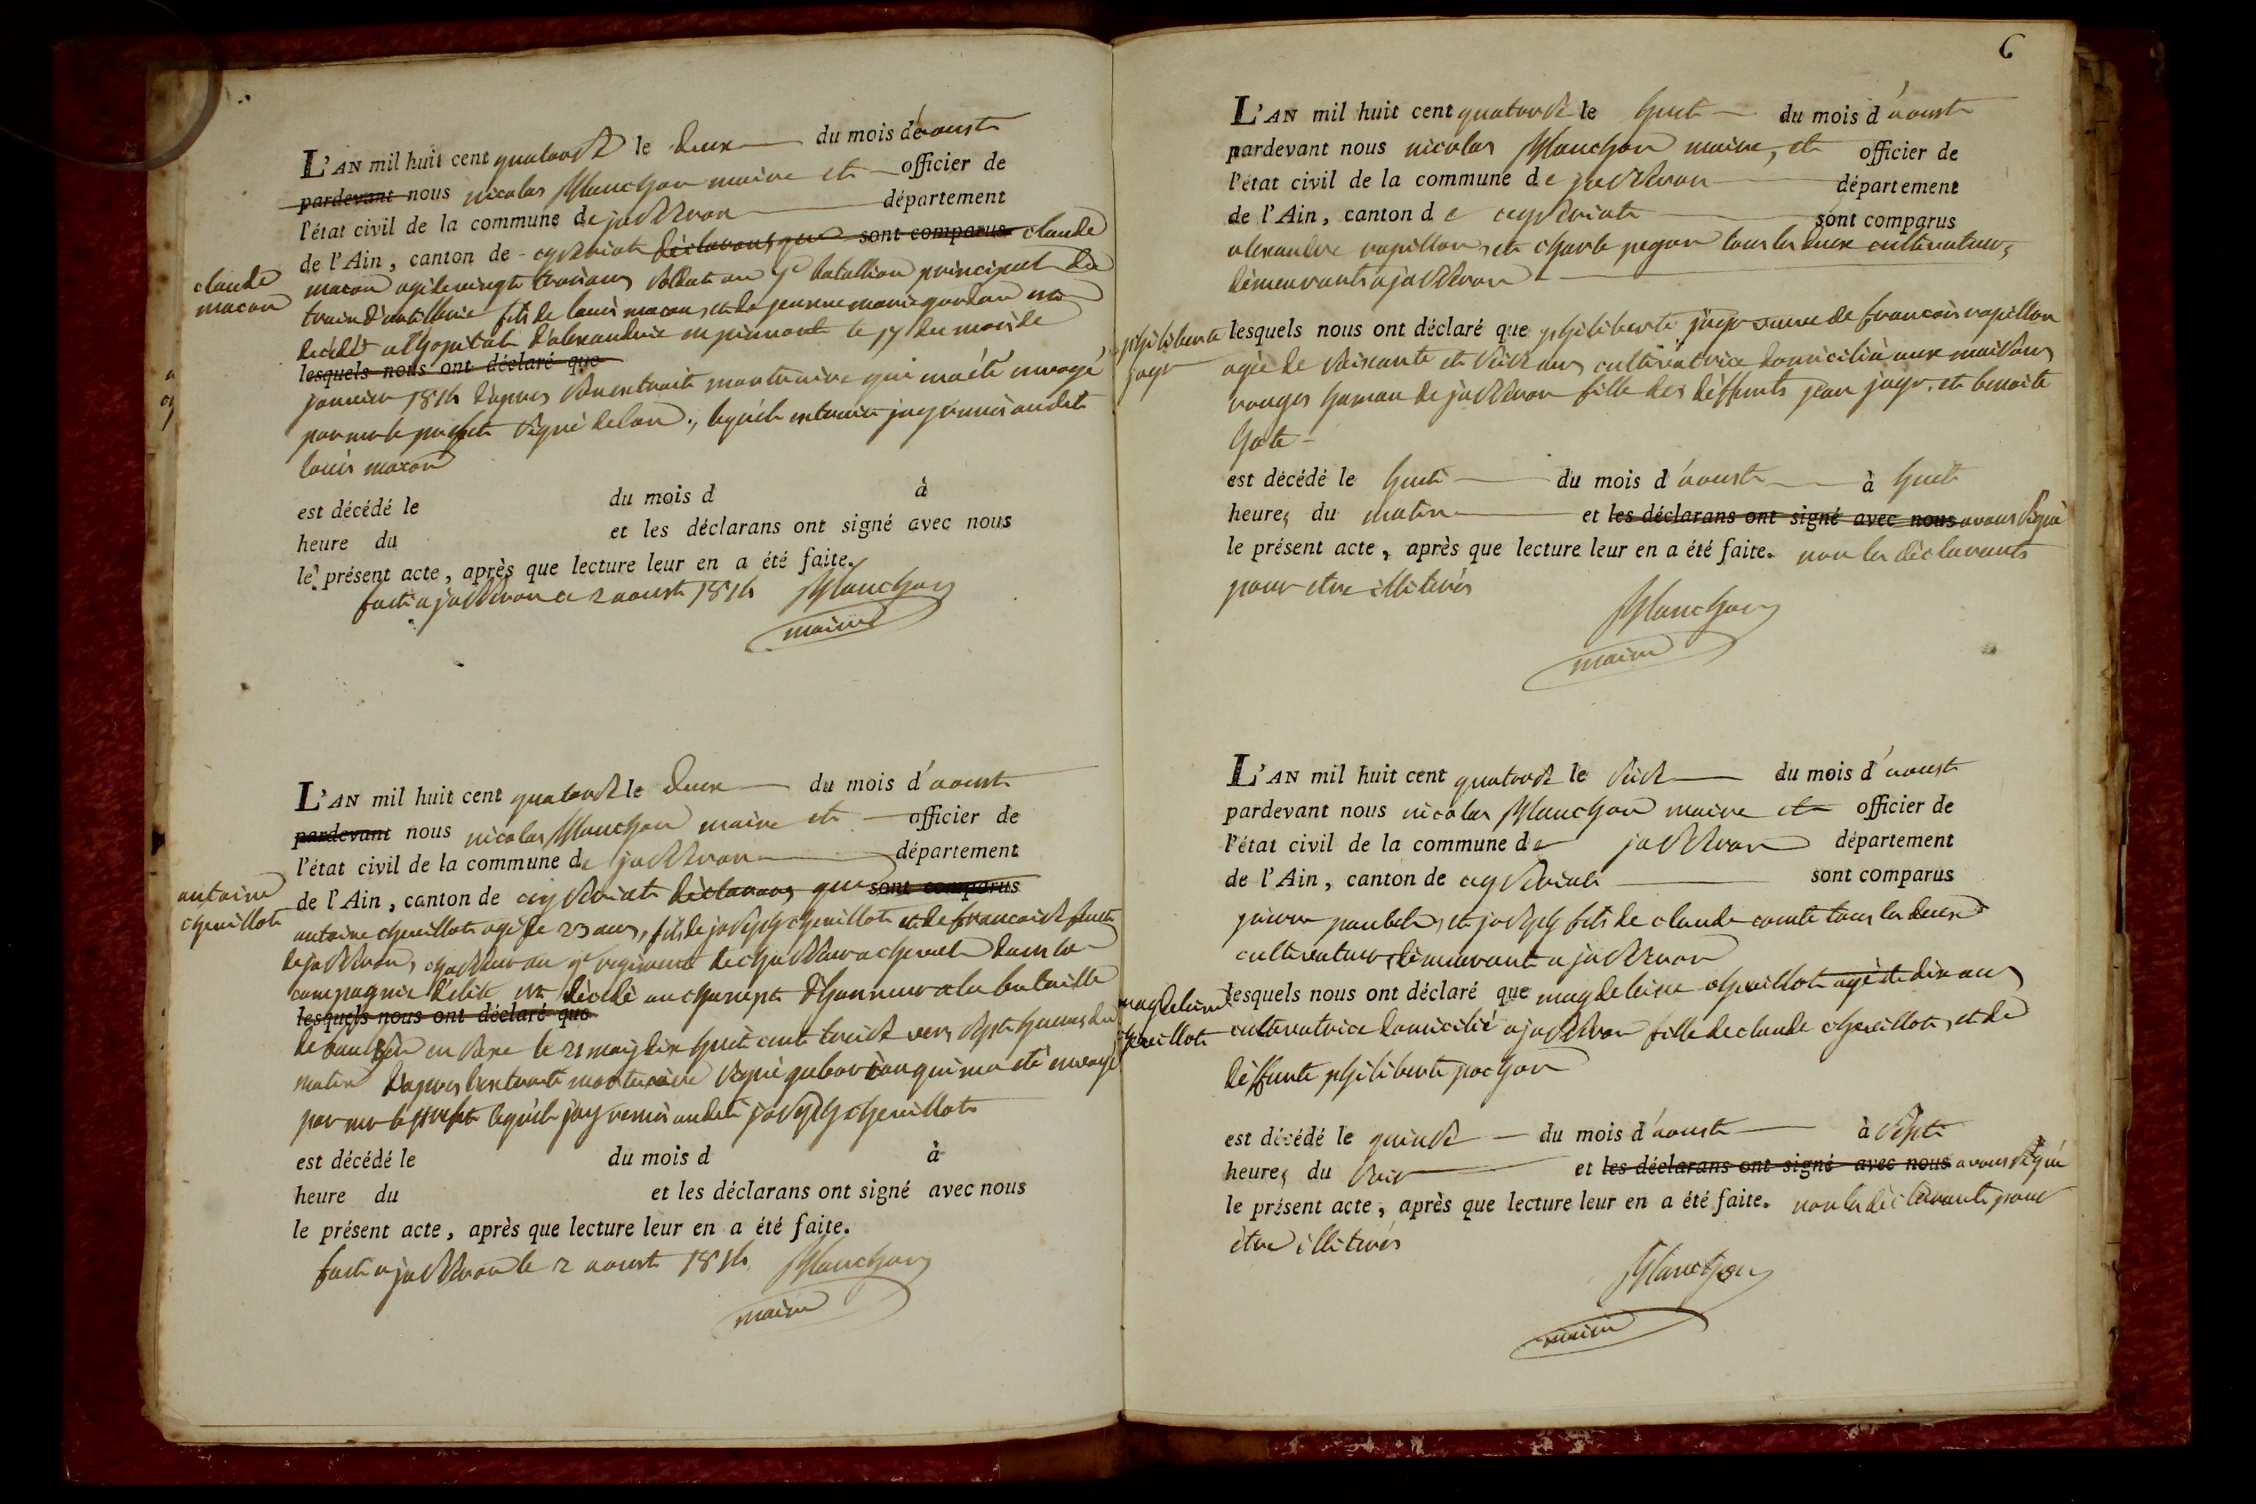 L'AN mil huit cent quatorze le deux du mois d'aoust
pardevant nous nicolas planchon maire et officier de
l'état civil de la commune de jasseron département
de l'Ain, canton de ceyzeriat déclarons que sont comparus claude
claude
macon
macon agé de vingt trois ans soldat au bataillon principal du
train d'artillerie fils de louis macon, et de jeanne marie est
décédé a l'hopital d'alexandrie en piemont le 17 du mois de
lesquels nous ont déclaré que
janvier 1814 d'apres son extrait mortuaire qui m'a été envoyé
par mr le prefet signé lequel extrait j'ay remis audit
louis macon
est décédé le du mois d à
heure du et les déclarans ont signé avec nous
le présent acte, après que lecture leur en a été faite.
fait a jasseron ce 2 aoust 1814 Planchon
maire
L'AN mil huit cent quatorze le deux du mois d'aoust
pardevant nous nicolas planchon maire et officier de
l'état civil de la commune de jasseron département
de l'Ain, canton de ceyzeriat déclarons que sont comparus
antoine
chevillot
antoine chevillot agé de 23 ans, fils de joseph chevillot et de francoise
de jasseron, chasseur au regiment de chasseur a cheval dans la
compagnie d'élite est décédé au champt d'honneur a la bataille
lesquels nous ont déclaré que
de en saxe le 21 may dix huit cent treize vers sept heures du
matin d'apres l'extrait mortuaire signé qui m'a été envoyé
par mr le prefet lequel j'ay remis audit joseph chevillot
est décédé le du mois d à
heure du et les déclarans ont signé avec nous
le présent acte, après que lecture leur en a été faite.
fait a jasseron le 2 aoust 1814 Planchon
maire
6
L'AN mil huit cent quatorze le huit du mois d'aoust
pardevant nous nicolas planchon maire, et officier de
l'état civil de la commune de jasseron département
de l'Ain, canton de ceyzeriat sont comparus
alexandre rapillon, et charle pegon tous les deux cultivateurs,
demeurants a jasseron
philiberte
jayr
lesquels nous ont déclaré que philiberte jayr veuve de francois rapillon
agée de soixante et seize ans cultivatrice domicilié aux maisons
rouges hameau de jasseron fille des deffunts jean jayr, et benoite
est décédé le huit du mois d'aoust à huit
heures du matin et les déclarans ont signé avec nous avons signé
le présent acte, après que lecture leur en a été faite. non les déclarants
pour etre illiterés
Planchon
maire
L'AN mil huit cent quatorze le seize du mois d'aoust
pardevant nous nicolas planchon maire et officier de
l'état civil de la commune de jasseron département
de l'Ain, canton de ceyzeriat sont comparus
et joseph fils de claude comte tous les deux
cultivateurs, demeurant a jasseron
magdeleine
chevillot
lesquels nous ont déclaré que magdeleine chevillot agée de dix ans
cultivatrice domicilié a jasseron fille de claude chevillot, et de
deffunte philiberte pochon
est décédé le quinze du mois d'aoust à sept
heures du soir et les déclarans ont signé avec nous avons signé
le présent acte, après que lecture leur en a été faite. non les déclarants pour
être illiterés
Planchon
maire